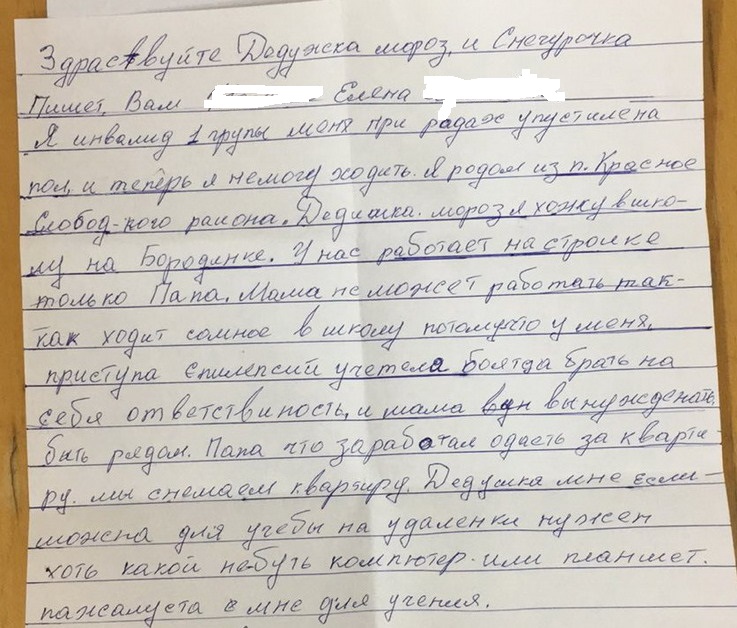 Здраствуйте Дедужска мороз, и Снегурочка
Пишет, Вам Елена
Я инвалид 1 групы меня при радах упустилена
пол, и теперь я немогу ходить. Я родом из п. Красное
Слобод-кого раиона. Дедушка. мороз я хожу вшко-
лу на Бородянке. У нас работает на строике
только Папа. Мама не может работать так-
как ходит сомное в школу потомучто у меня,
приступа Єпилепсий учетела боятда брать на
себя ответствиность, и мама вынужденать
быть рядом. Папа что заработал одаеть за кварти-
ру. мы снемаем квартиру. Дедушка мне если-
можна для учебы на удаленки нужен
хоть какой небуть компютер-или планшет.
пажалуста мне для учения.